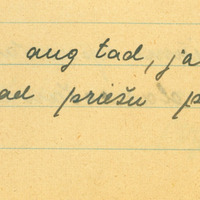 aug tad, ja
ad priešu p